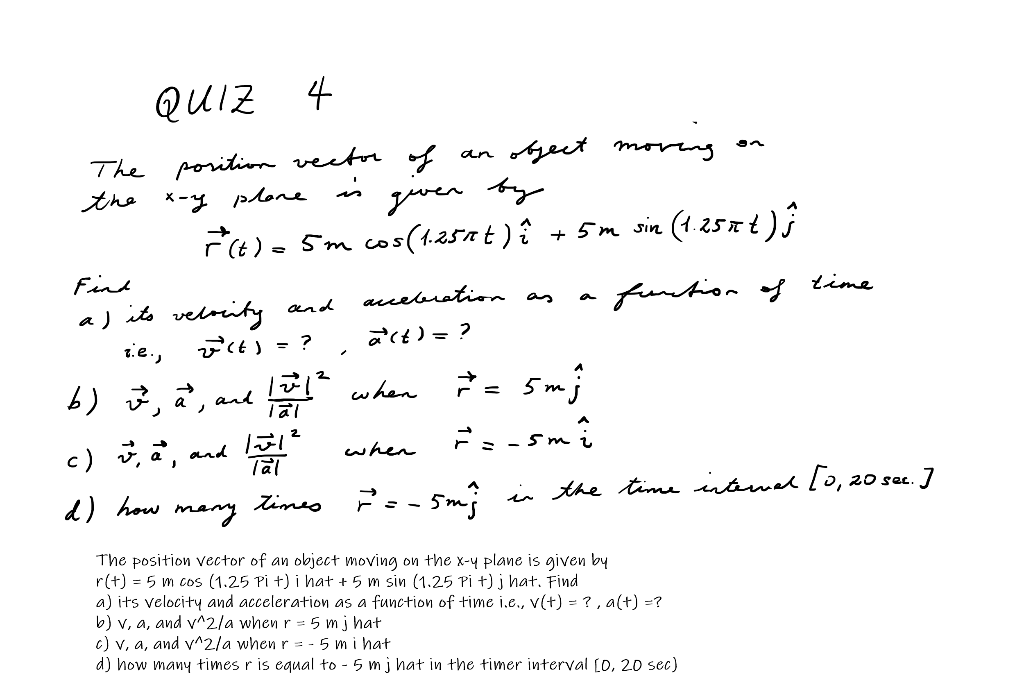 QUIZ 4
The position vector of an object moving on
the x-y plane is given by
r⃗(t) = 5m cos(1.25πt) î + 5m sin(1.25πt) ĵ
Find
a) its velocity and acceleration as a function of time
i.e., v⃗(t) = ? , a⃗(t) = ?
b) v⃗, a⃗, and |v⃗|²/|a⃗| when r⃗ = 5m ĵ
c) v⃗, a⃗, and |v⃗|²/|a⃗| when r⃗ = -5m î
d) how many times r⃗ = -5m ĵ in the time interval [0, 20 sec.]
The position vector of an object moving on the x-y plane is given by
r(t) = 5 m cos (1.25 Pi t) i hat + 5 m sin (1.25 Pi t) j hat. Find
a) its velocity and acceleration as a function of time i.e., v(t) = ? , a(t) =?
b) v, a, and v^2/a when r = 5 m j hat
c) v, a, and v^2/a when r = - 5 m i hat
d) how many times r is equal to - 5 m j hat in the timer interval [0, 20 sec)